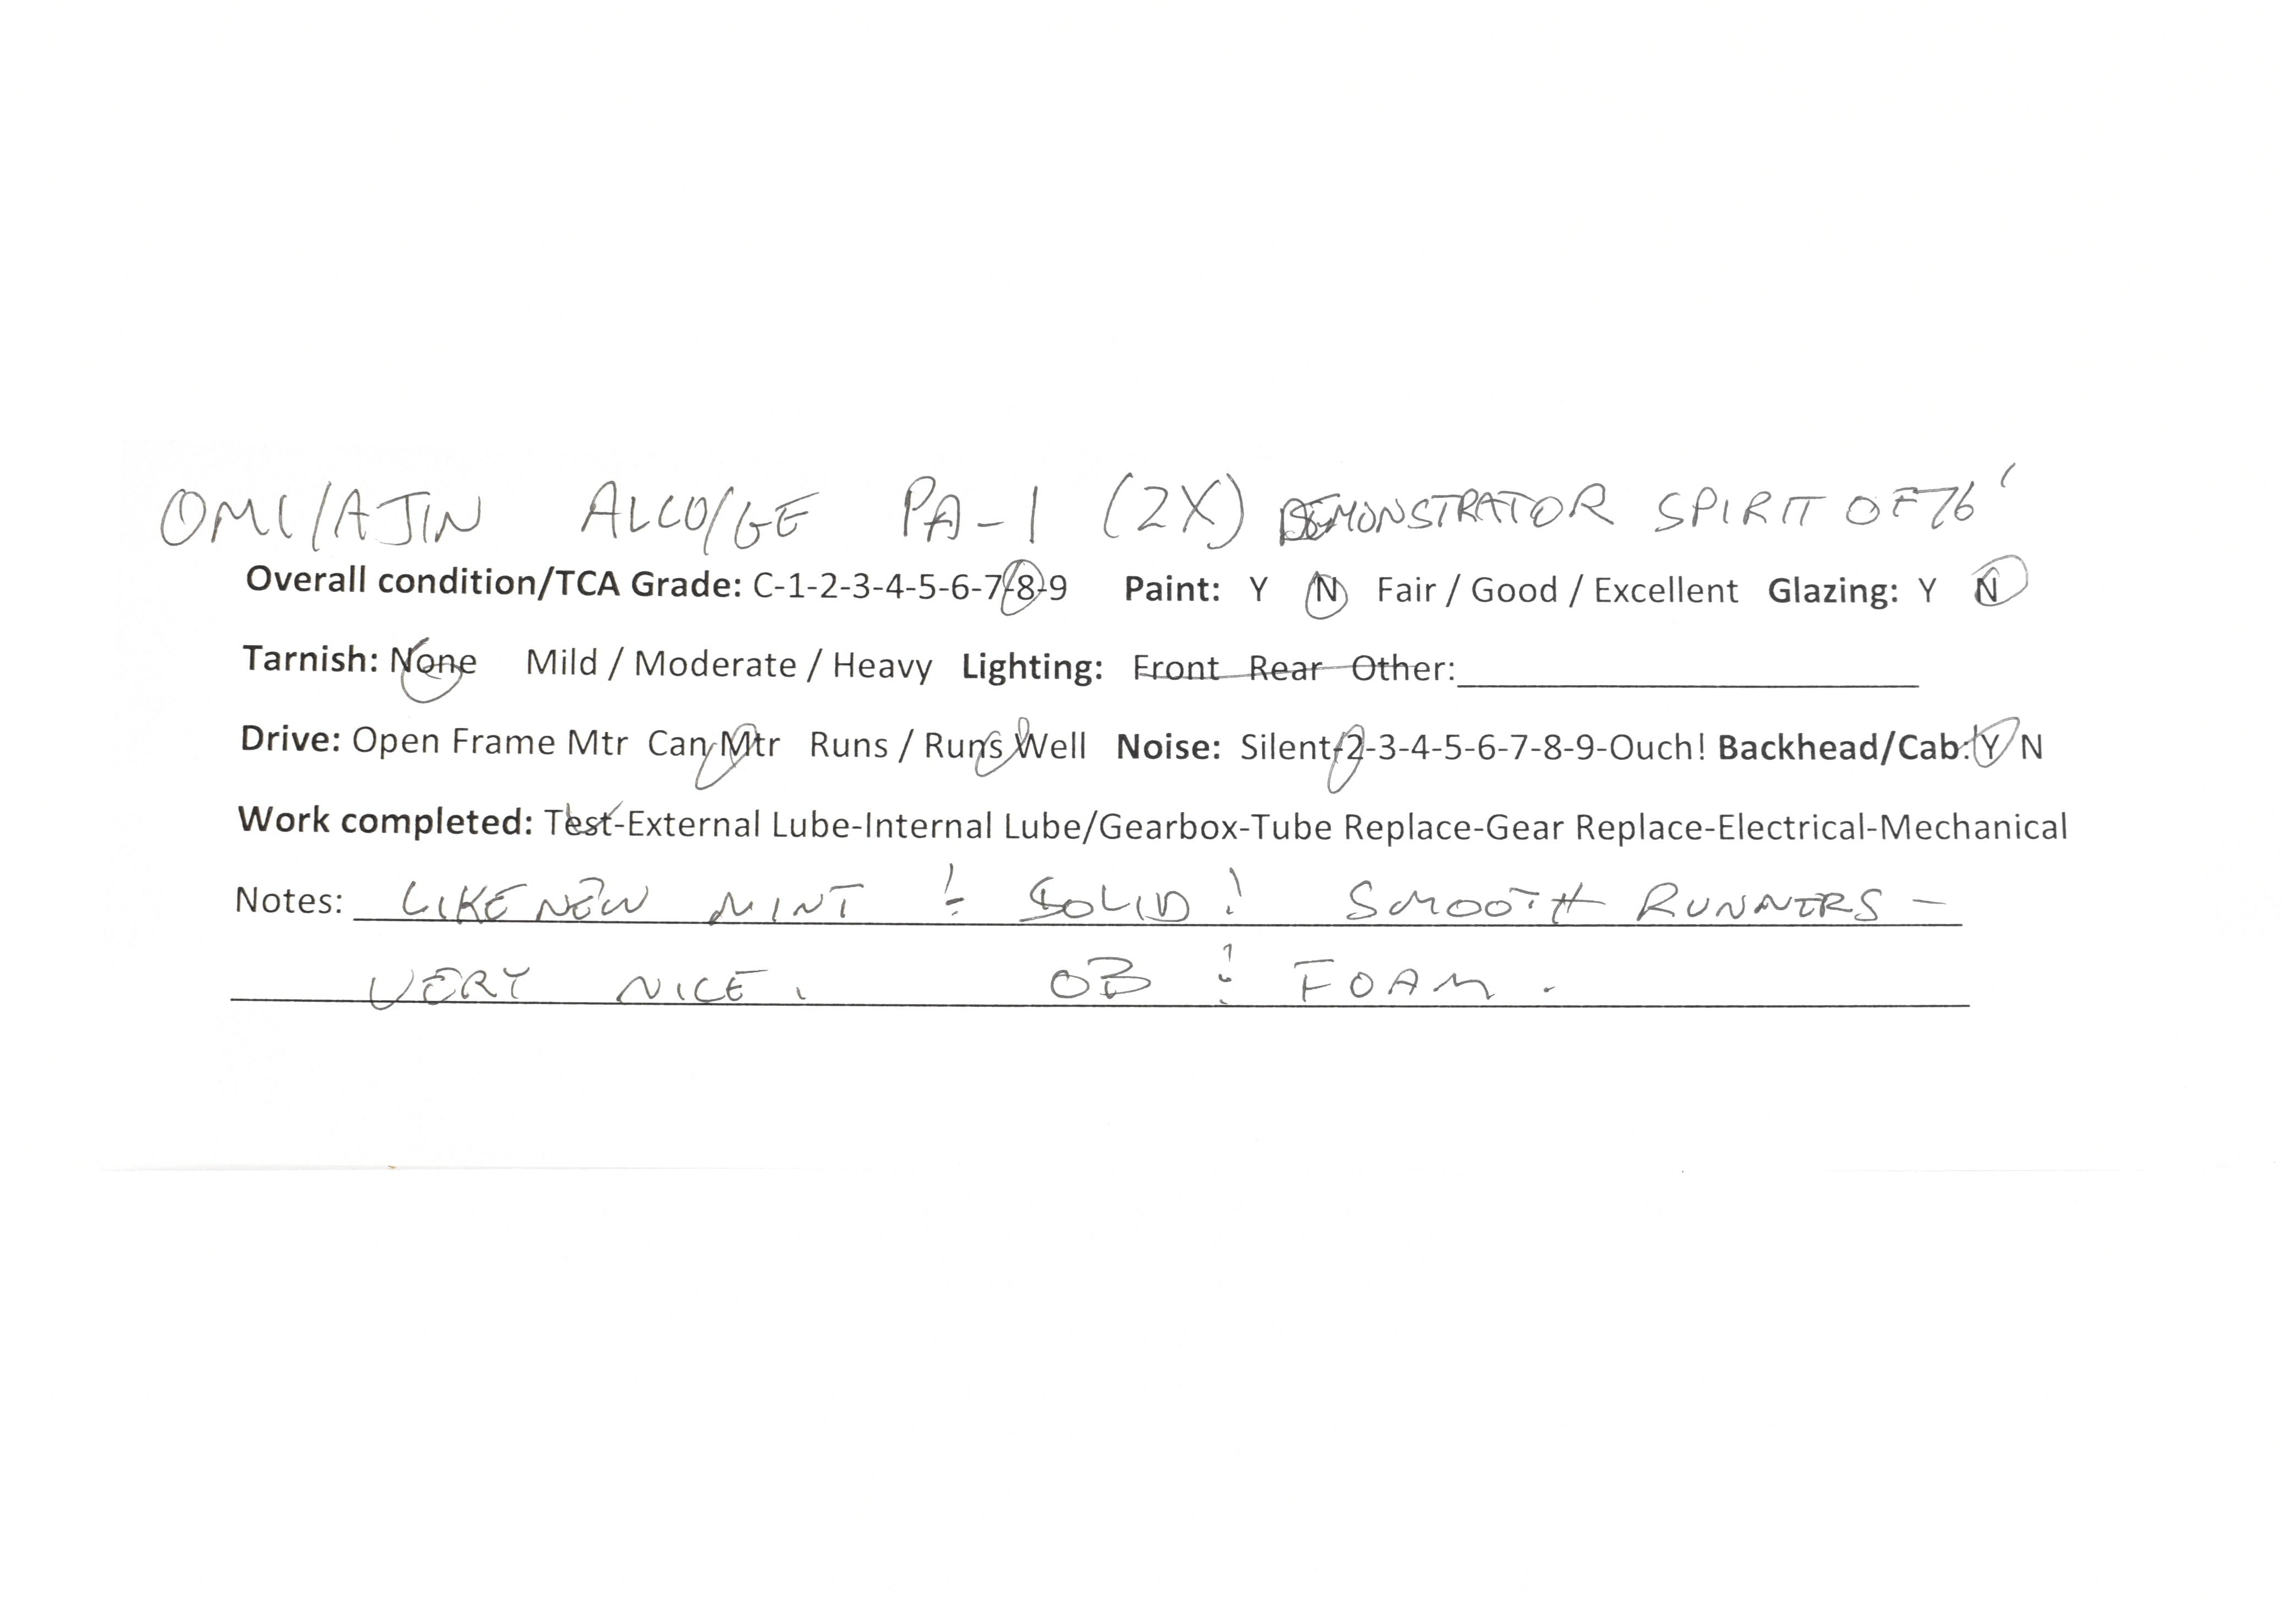 OMI/AJIN ALCO/GE PA-1 (2X) DEMONSTRATOR SPIRIT OF 76'
Overall condition/TCA Grade: C-1-2-3-4-5-6-7-8-9 Paint: Y N Fair / Good / Excellent Glazing: Y N
Tarnish: None Mild / Moderate / Heavy Lighting: Front Rear Other:
Drive: Open Frame Mtr Can Mtr Runs / Runs Well Noise: Silent-2-3-4-5-6-7-8-9-Ouch! Backhead/Cab: Y N
Work completed: Test-External Lube-Internal Lube/Gearbox-Tube Replace-Gear Replace-Electrical-Mechanical
Notes: LIKE NEW MINT & SOLID! SMOOTH RUNNERS -
VERY NICE. OB & FOAM.